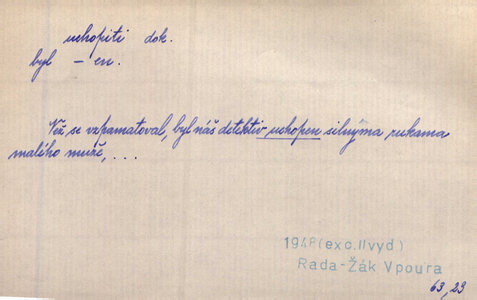 uchopiti dok.
byl – en.
Než se vzpamatoval, byl náš detektiv uchopen silnýma rukama
malého muže, . . .
1948 (exc. II vyd)
Rada-Žák Vpoura
63, 23